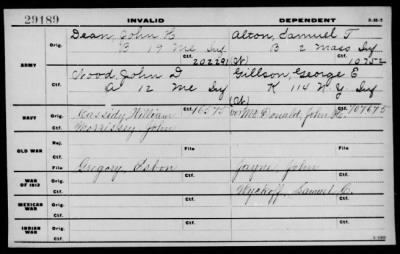 29189
INVALID
DEPENDENT
3-402
ARMY
Orig.
Dean, John H.
B 19 Me Inf
Alton, Samuel T
B 2 Mass Inf
Ctf.
202291
10752
Wood, John D
A 12 Me Inf
Gillson, George E
K 114 N Y Inf
NAVY
Orig.
Cassidy, William
10575
Mc Donald, John H.
107675
Ctf.
Morrissey John
OLD WAR
Rej.
Ctf.
File
File
WAR OF 1812
Orig.
Gregory, Esbon
Jayne, John
Ctf.
Wyckoff, Samuel C.
MEXICAN WAR
Orig.
Ctf.
INDIAN WAR
Orig.
Ctf.